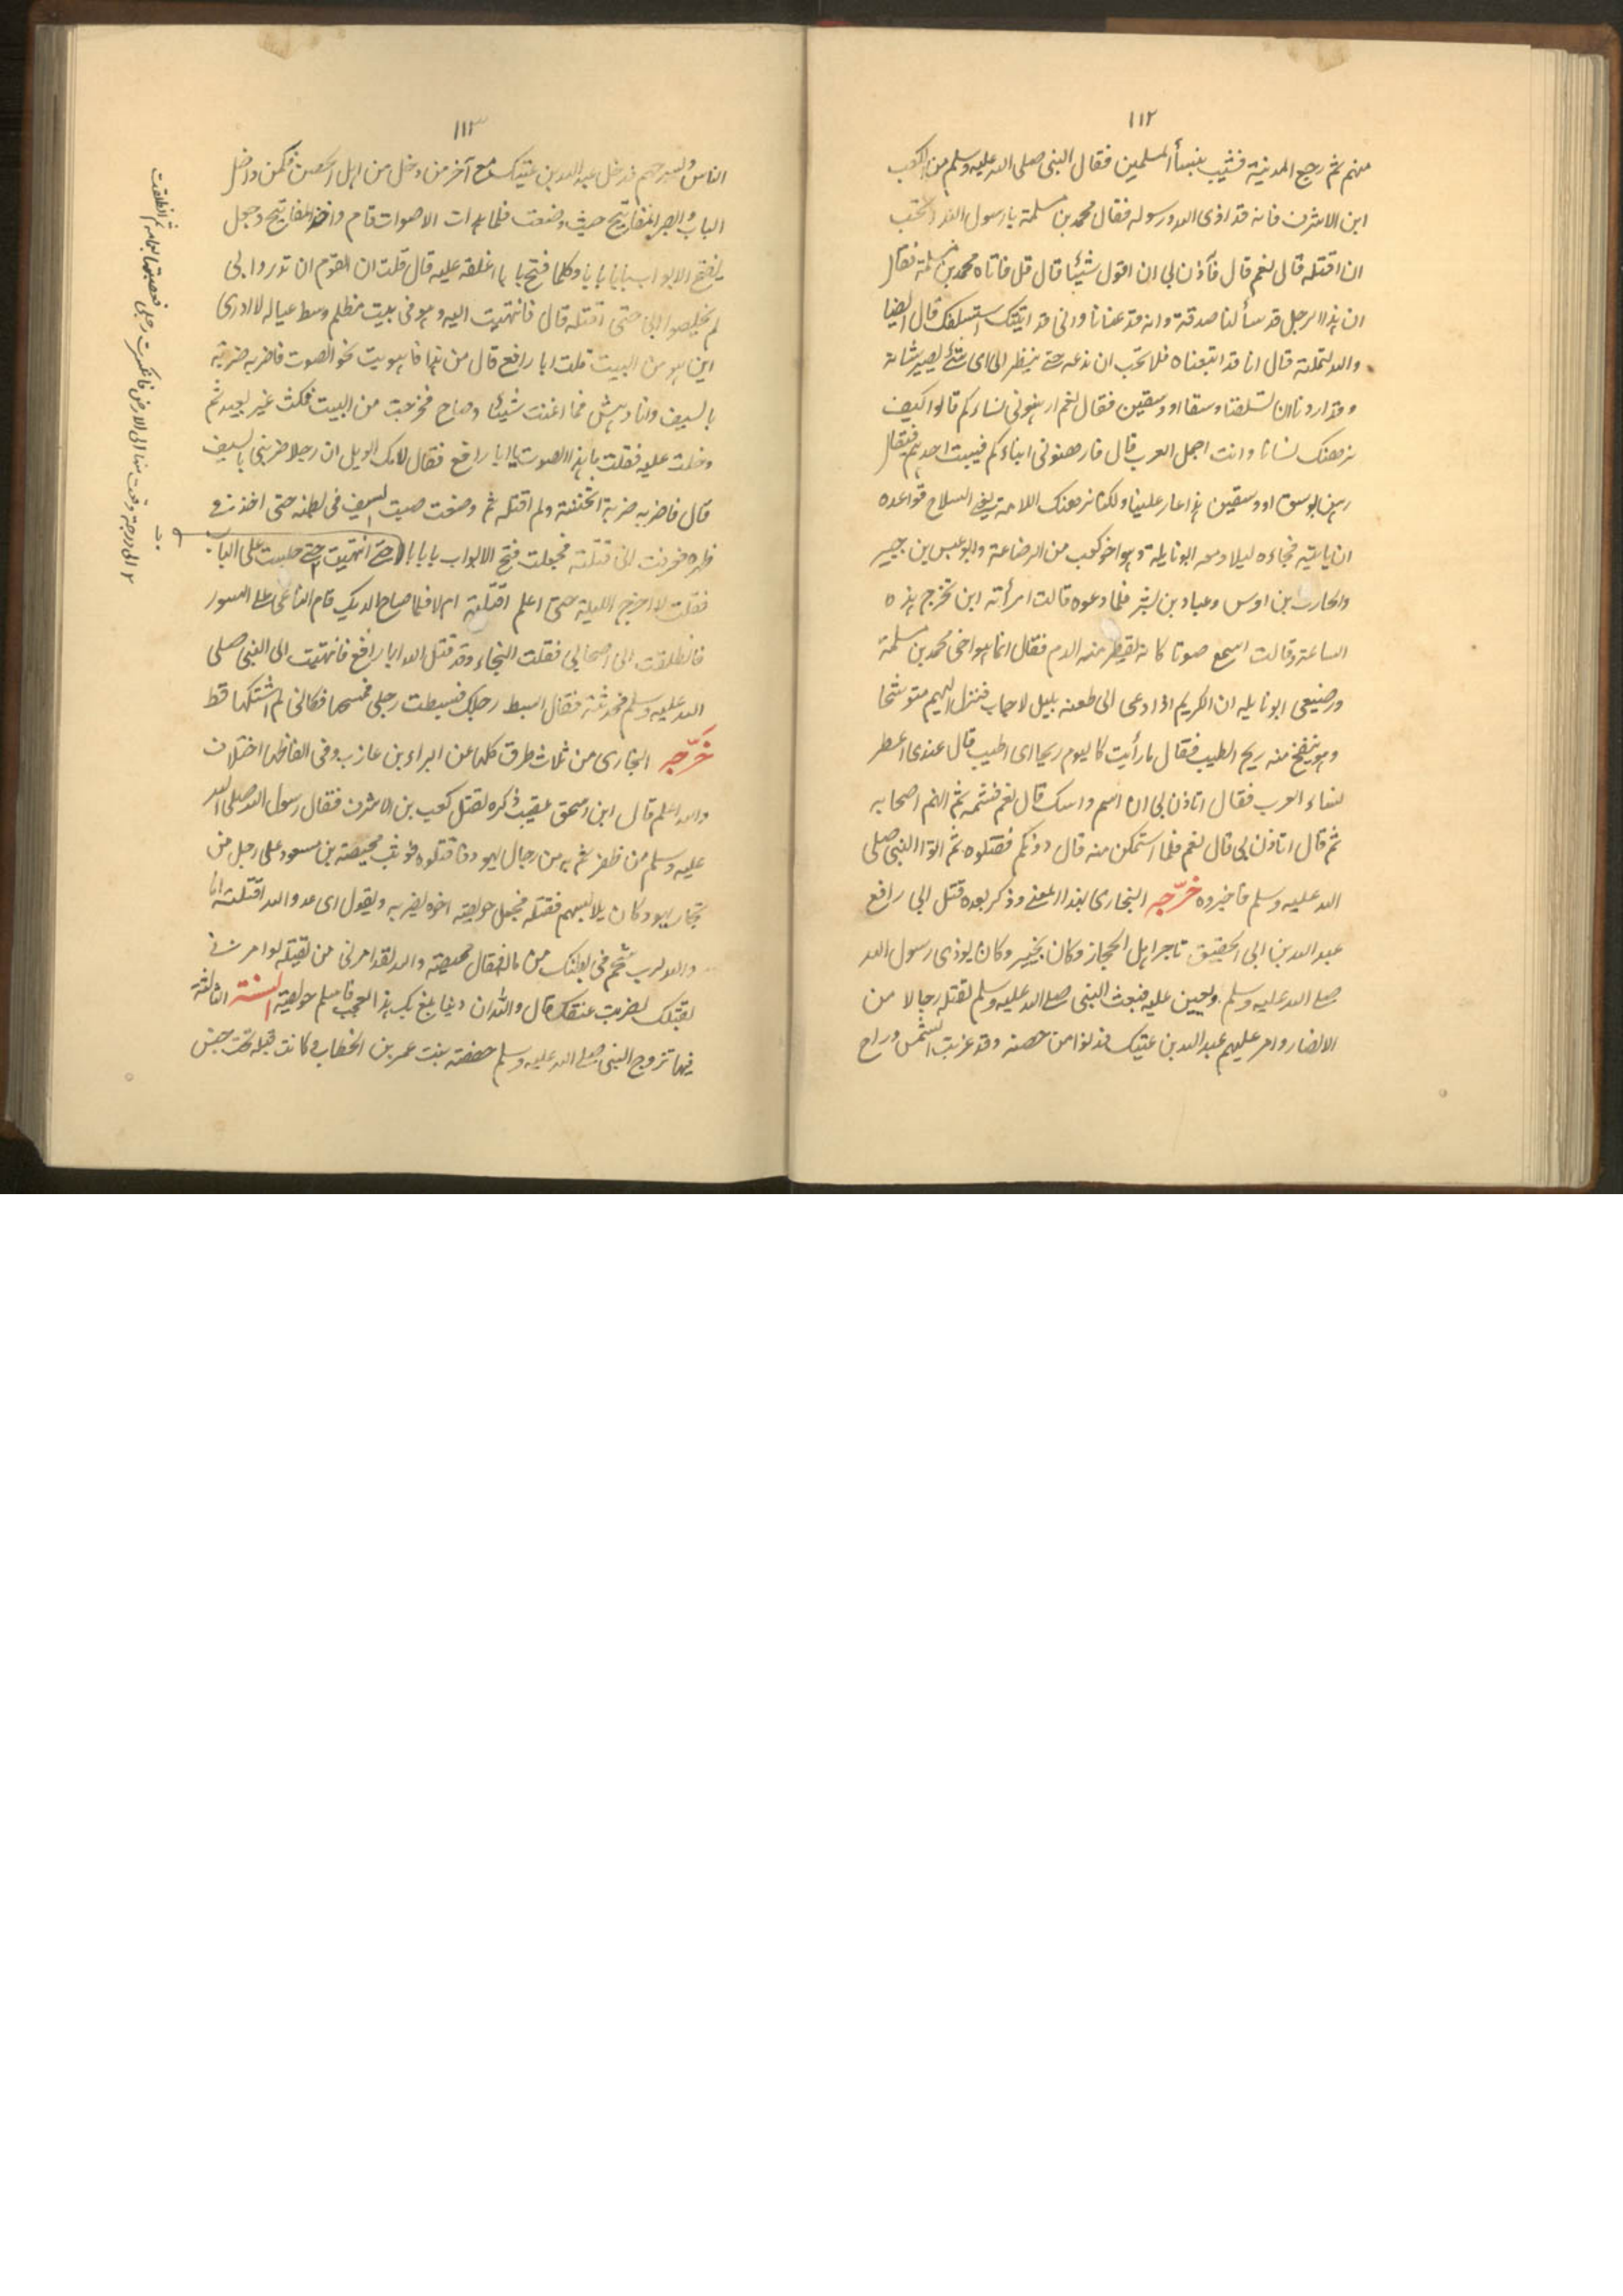 ١١٢
منهم ثم رجع المدينة فشبب بنساء المسلمين فقال النبي صلى الله عليه وسلم من لكعب
ابن الاشرف فانه قد اذى الله ورسوله فقال محمد بن مسلمة يا رسول الله اتحب
ان اقتله قال نعم قال فأذن لي ان اقول شيئا قال قل فاتاه محمد بن مسلمة فقال
ان هذا الرجل قد سألنا صدقة وانه قد عنانا واني قد اتيتك استسلفك قال ايضا
والله لتملنه قال انا قد اتبعناه فلا نحب ان ندعه حتى ينظر الى اى شئ يصير شانه
وقد اردنا ان تسلفنا وسقا او وسقين فقال نعم ارهنوني نساءكم قالوا كيف
نرهنك نسانا وانت اجمل العرب قال فارهنوني ابناءكم فيسب احدهم فيقال
رهن بوسق او وسقين هذا عار علينا ولكنا نرهنك اللامة يعني السلاح فواعده
ان ياتيه فجاءه ليلا ومعه ابو نايلة وهو اخو كعب من الرضاعة وابو عبس بن جبير
والحارث بن اوس وعباد بن بشر فلما دعوه قالت امرأته اين تخرج هذه
الساعة وقالت اسمع صوتا كانه يقطر منه الدم فقال انما هو اخي محمد بن مسلمة
ورضيعي ابو نايله ان الكريم اذا دعى الى طعنه بليل لاجاب فنزل اليهم متوشحا
وهو ينفخ منه ريح الطيب فقال ما رأيت كاليوم ريحا اى اطيب قال عندى اعطر
نساء العرب فقال اتاذن لي ان اشم راسك قال نعم فشمه ثم اشم اصحابه
ثم قال اتاذن لي قال نعم فلما استمكن منه قال دونكم فقتلوه ثم اتوا النبي صلى
الله عليه وسلم فاخبروه خرّجه البخارى بهذا المعنى وذكر بعده قتل ابي رافع
عبد الله بن ابي الحقيق تاجر اهل الحجاز وكان بخيبر وكان يوذى رسول الله
صلى الله عليه وسلم ويعين عليه فبعث النبي صلى الله عليه وسلم لقتله رجالا من
الانصار وامر عليهم عبد الله بن عتيك فدنوا من حصنه وقد غربت الشمس وراح
١١٣
الناس بسرحهم فدخل عبد الله بن عتيك مع آخر من دخل من اهل الحصن فكمن وادخل
الباب وابصر المفاتيح حيث وضعت فلما هدات الاصوات قام واخذ المفاتيح وجعل
يفتح الابواب بابا بابا وكلما فتح بابا اغلقه عليه قال قلت ان القوم ان نذروا بي
لم يخلصوا الي حتى اقتله قال فانتهيت اليه وهو في بيت مظلم وسط عياله لا ادرى
اين هو من البيت قلت ابا رافع قال من هذا فاهويت نحو الصوت فاضربه ضربة
بالسيف وانا دهش فما اغنت شيئا وصاح فخرجت من البيت فمكث غير بعيد ثم
دخلت عليه فقلت ما هذا الصوت يا ابا رافع فقال لامك الويل ان رجلا ضربني بالسيف
قال فاضربه ضربة اثخنته ولم اقتله ثم وضعت ضبيب السيف في بطنه حتى اخذ في
ظهره فعرفت اني قتلته فجعلت افتح الابواب بابا بابا حتى انتهيت حتى جلست على الباب
فقلت لا اخرج الليلة حتى اعلم اقتلته ام لا فلما صاح الديك قام الناعي على السور
فانطلقت الى اصحابي فقلت النجاء وقد قتل الله ابا رافع فانتهيت الى النبي صلى
الله عليه وسلم فحدثته فقال ابسط رجلك فبسطت رجلي فمسحها فكاني لم اشتكها قط
خَرَّجه البخارى من ثلاث طرق كلها عن البراء بن عازب وفي الفاظها اختلاف
والله اعلم قال ابن اسحق عقيب ذكره لقتل كعب بن الاشرف فقال رسول الله صلى الله
عليه وسلم من ظفرتم به من رجال اليهود فاقتلوه فوثب محيصة بن مسعود على رجل من
تجار يهود كان يلابسهم فقتله فجعل حويصة اخوه يضربه ويقول اى عدو الله اقتلته اما
والله لرب شحم في بطنك من ماله فقال محيصة والله لقد امرني من بقتله لو امرني
بقتلك لضربت عنقك قال والله ان دينا بلغ بك هذا لعجب فاسلم حويصة السنة الثالثة
فيها تزوج النبي صلى الله عليه وسلم حفصة بنت عمر بن الخطاب وكانت قبله تحت خنيس
الى درجة وقعت منها الى الارض فانكسرت رجلي فعصبتها بعمامة ثم انطلقت